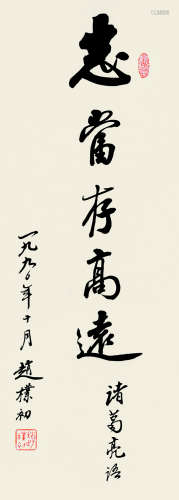 志當存高遠
諸葛亮語
一九九〇年十月
趙樸初